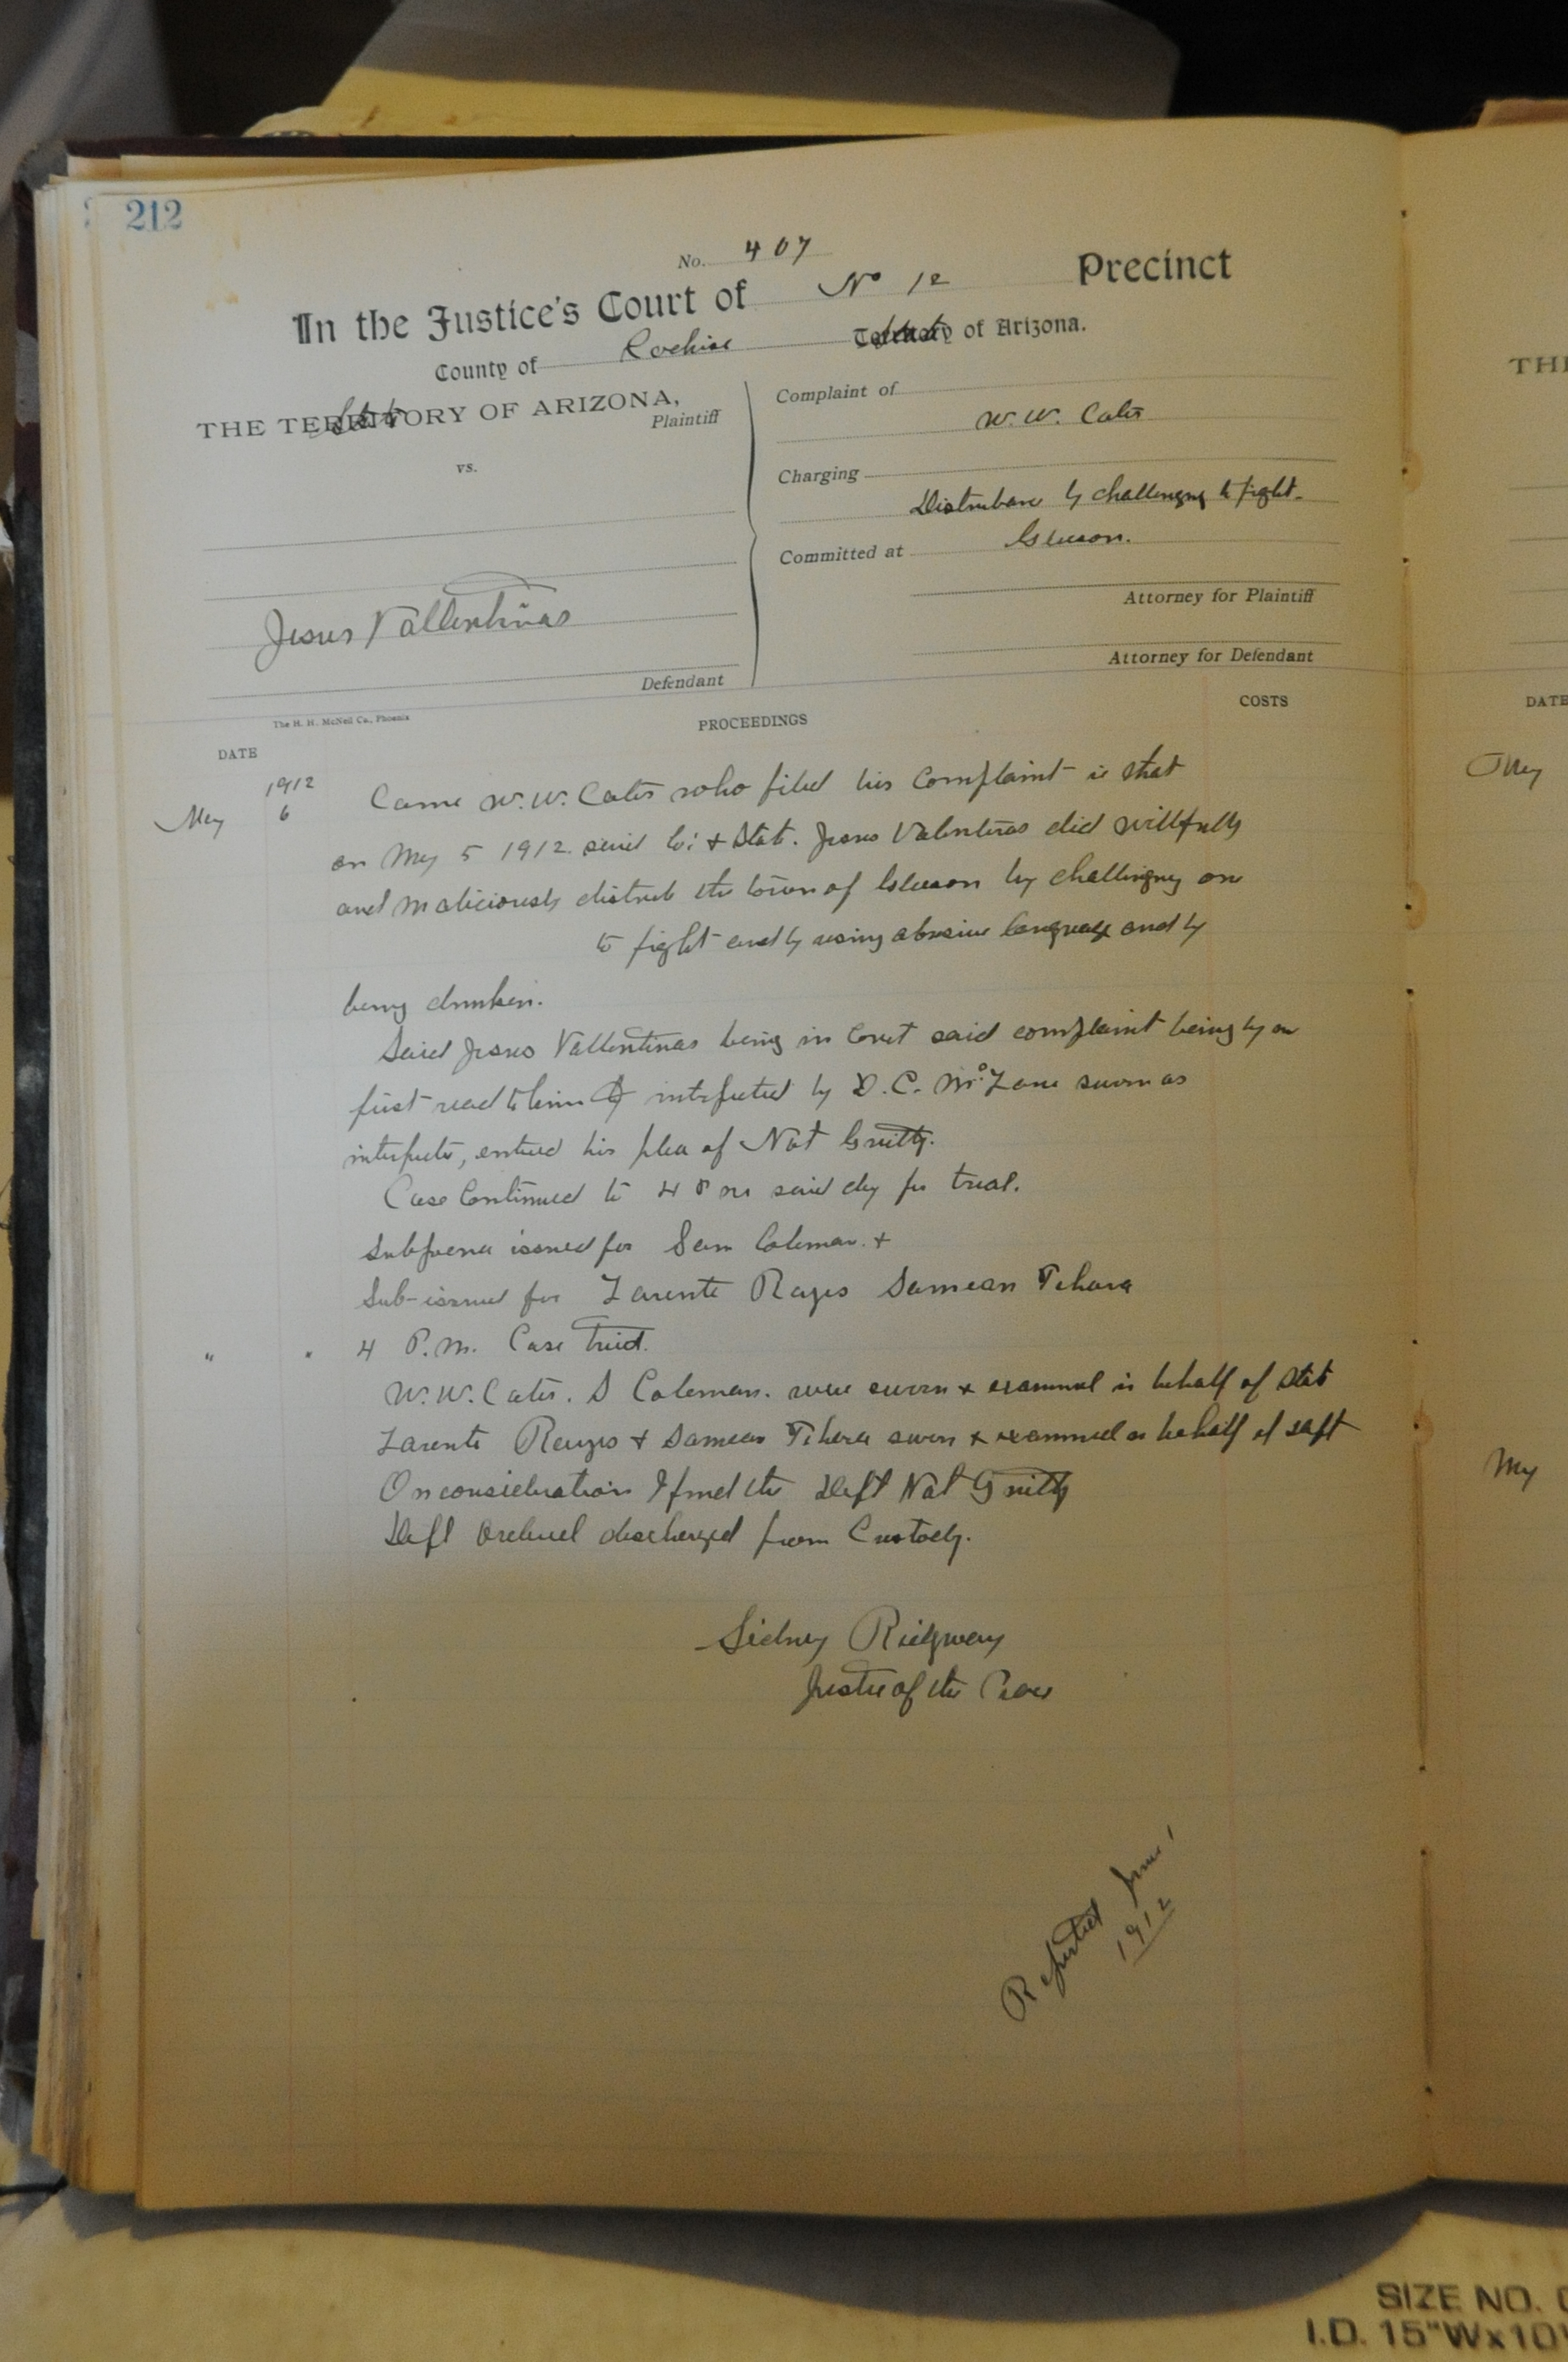 212
No. 407
In the Justice's Court of No 12 Precinct
County of Cochise State of Arizona.
THE TERRITORY OF ARIZONA,
State
Plaintiff
vs.
Jesus Vallentinas
Defendant
Complaint of
W. W. Cates
Charging
Disturbance by challenging to fight.
Committed at Gleeson.
Attorney for Plaintiff
Attorney for Defendant
The H. H. McNeil Co., Phoenix
DATE PROCEEDINGS COSTS
1912
May 6 Came W. W. Cates who filed his Complaint is that
on May 5 1912 said Co: & State. Jesus Valentinas did willfully
and maliciously disturb the town of Gleeson by challenging one
to fight and by using abusive language and by
being drunken.
Said Jesus Vallentinas being in Court said complaint being by me
first read to him & interpreted by D. C. sworn as
interpreter, entered his plea of Not Guilty.
Case Continued to 4 P m said day for trial.
Subpoena issued for Sam Coleman. &
Sub-issued for Larente Rayes Samean Tehara
" " 4 P.M. Case Tried.
W. W. Cates. S Coleman. were sworn & examined in behalf of State
Larente Rayes & Samean Tehara sworn & examined on behalf of Deft
On consideration I find the Deft Not Guilty
Deft Ordered discharged from Custody.
Sidney Ridgway
Justice of the Peace
Reported June 1
1912
THE
DATE
May
May
SIZE NO.
I.D. 15"Wx10